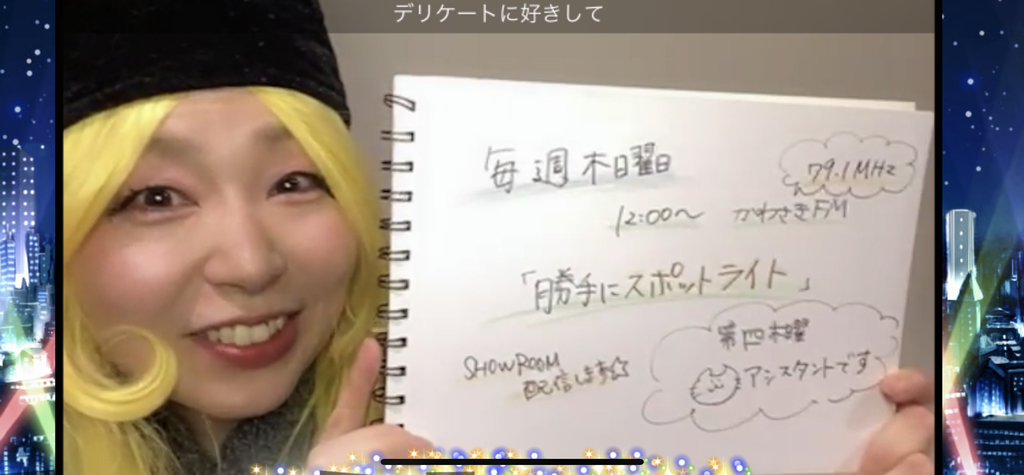 デリケートに好きして
毎週木曜日
79.1MHz
12:00〜 かわさきFM
「勝手にスポットライト」
SHOWROOM
配信します☆
第四木曜
アシスタントです